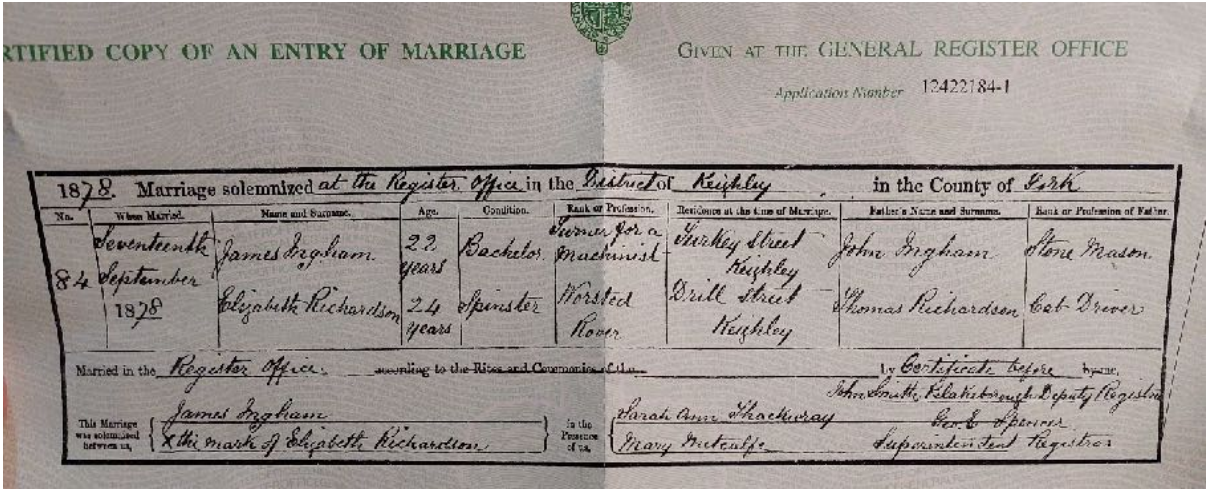 RTIFIED COPY OF AN ENTRY OF MARRIAGE
GIVEN AT THE GENERAL REGISTER OFFICE
Application Number 12422184-1
1878. Marriage solemnized at the Register Office in the District of Keighley in the County of York
No. When Married. Name and Surname. Age. Condition. Rank or Profession. Residence at the time of Marriage. Father's Name and Surname. Rank or Profession of Father.
84 Seventeenth September 1878
James Ingham 22 years Bachelor Turner for a Machinist Turkey Street Keighley John Ingham Stone Mason
Elizabeth Richardson 24 years Spinster Worsted Rover Drill Street Keighley Thomas Richardson Cab Driver
Married in the Register Office. according to the Rites and Ceremonies of the by Certificate before by me,
This Marriage was solemnized between us, James Ingham
X the mark of Elizabeth Richardson
in the Presence of us, Sarah Ann Thackwray
Mary Metcalfe
John Smith Deputy Registrar
Geo. E Spencer
Superintendent Registrar